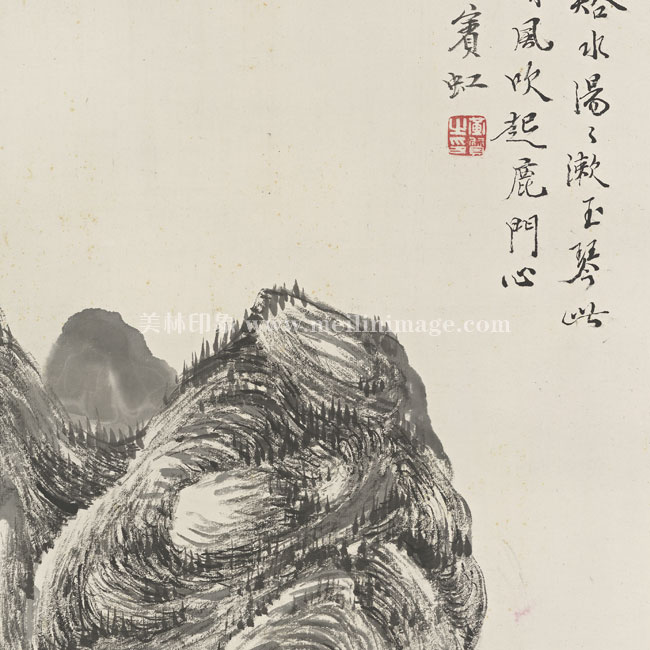 水湯〻漱玉琴此
風吹起鹿門心
賓虹
黃質之印
美林印象 www.meilinimage.com